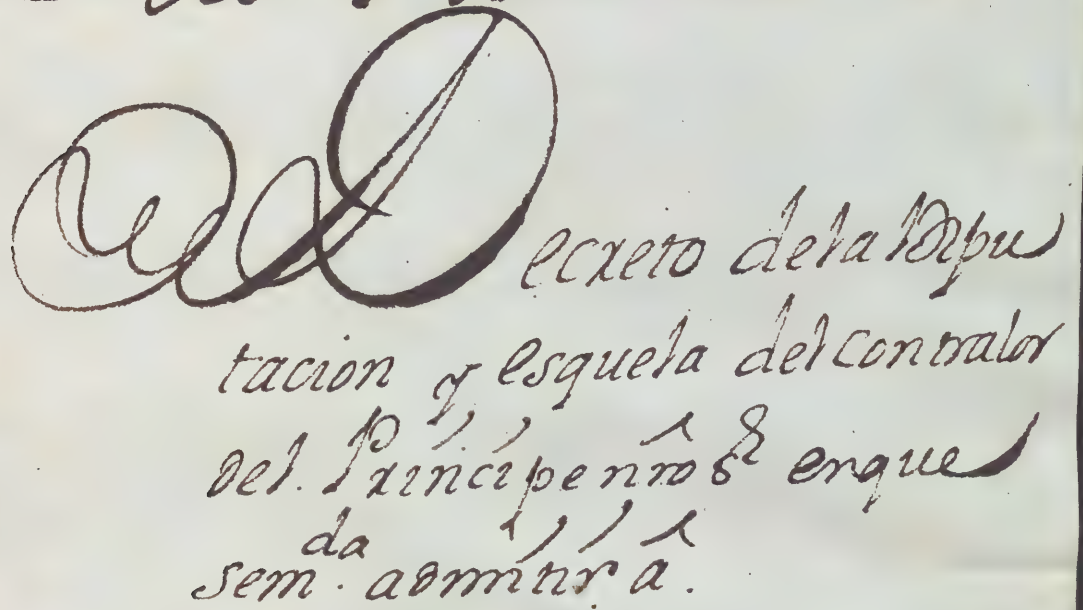 Decreto dela Dipu
tacion y esquela del contralor
del Principe nro sr enque
sem.da admitir a.